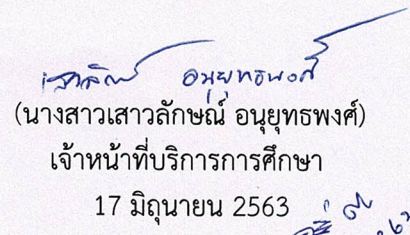 เสาวลักษณ์ อนุยุทธพงศ์
(นางสาวเสาวลักษณ์ อนุยุทธพงศ์)
เจ้าหน้าที่บริการการศึกษา
17 มิถุนายน 2563